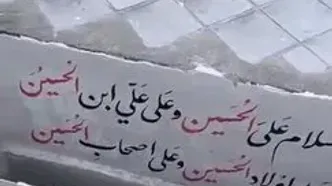 سلام عَلىَ الحُسَين وعَلى عَلّي ابن الحُسينُ
اولاد الحُسَين وعَلى اصحاب الحُسَين